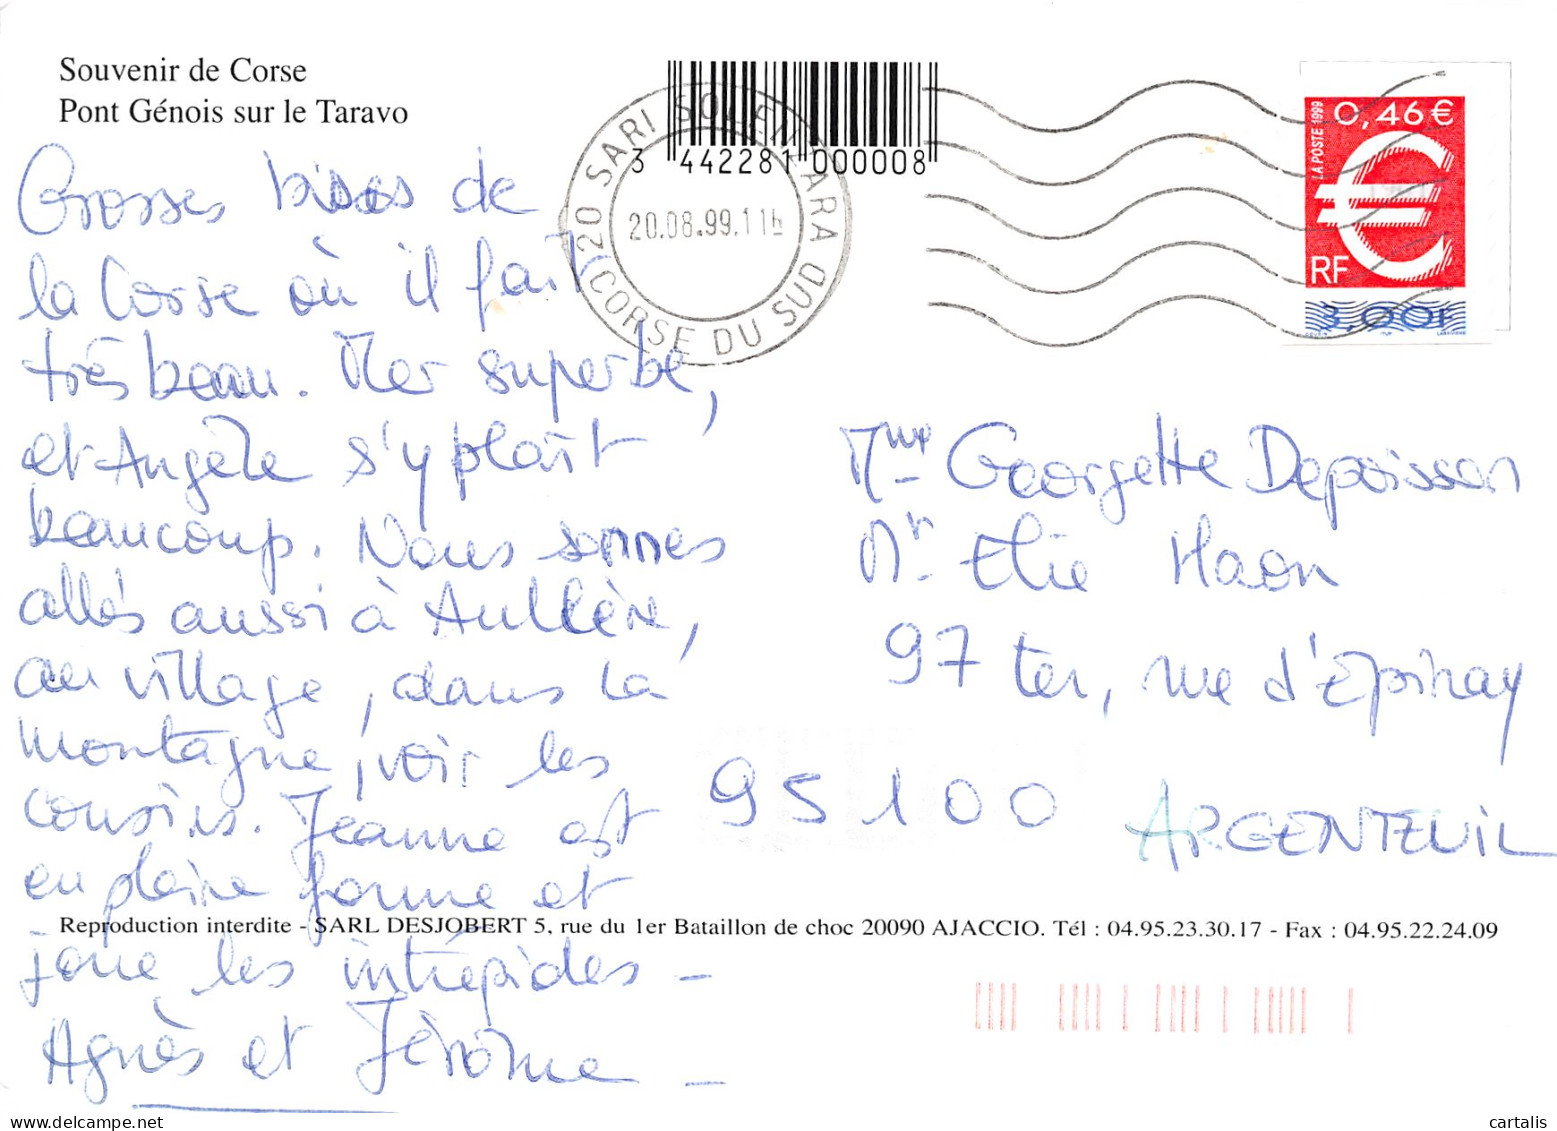 Souvenir de Corse
Pont Génois sur le Taravo
3 442281 000008
20 SARI SOLENZARA
20.08.99.11h
CORSE DU SUD
LA POSTE 1999
0,46 €
€
RF
3,00F
Grosses bises de
la Corse où il fait
très beau. Mer superbe,
et Angèle s'y plaît
beaucoup. Nous sommes
allés aussi à Aullène,
au village, dans la
montagne, voir les
cousins. Jeanne est
en pleine forme et
joue les intrépides -
Agnès et Jérôme -
Mme Georgette Depoisson
Mr. Elie Haon
97 ter, rue d'Epinay
95100 ARGENTEUIL
Reproduction interdite - SARL DESJOBERT 5, rue du 1er Bataillon de choc 20090 AJACCIO. Tél : 04.95.23.30.17 - Fax : 04.95.22.24.09
cartalis